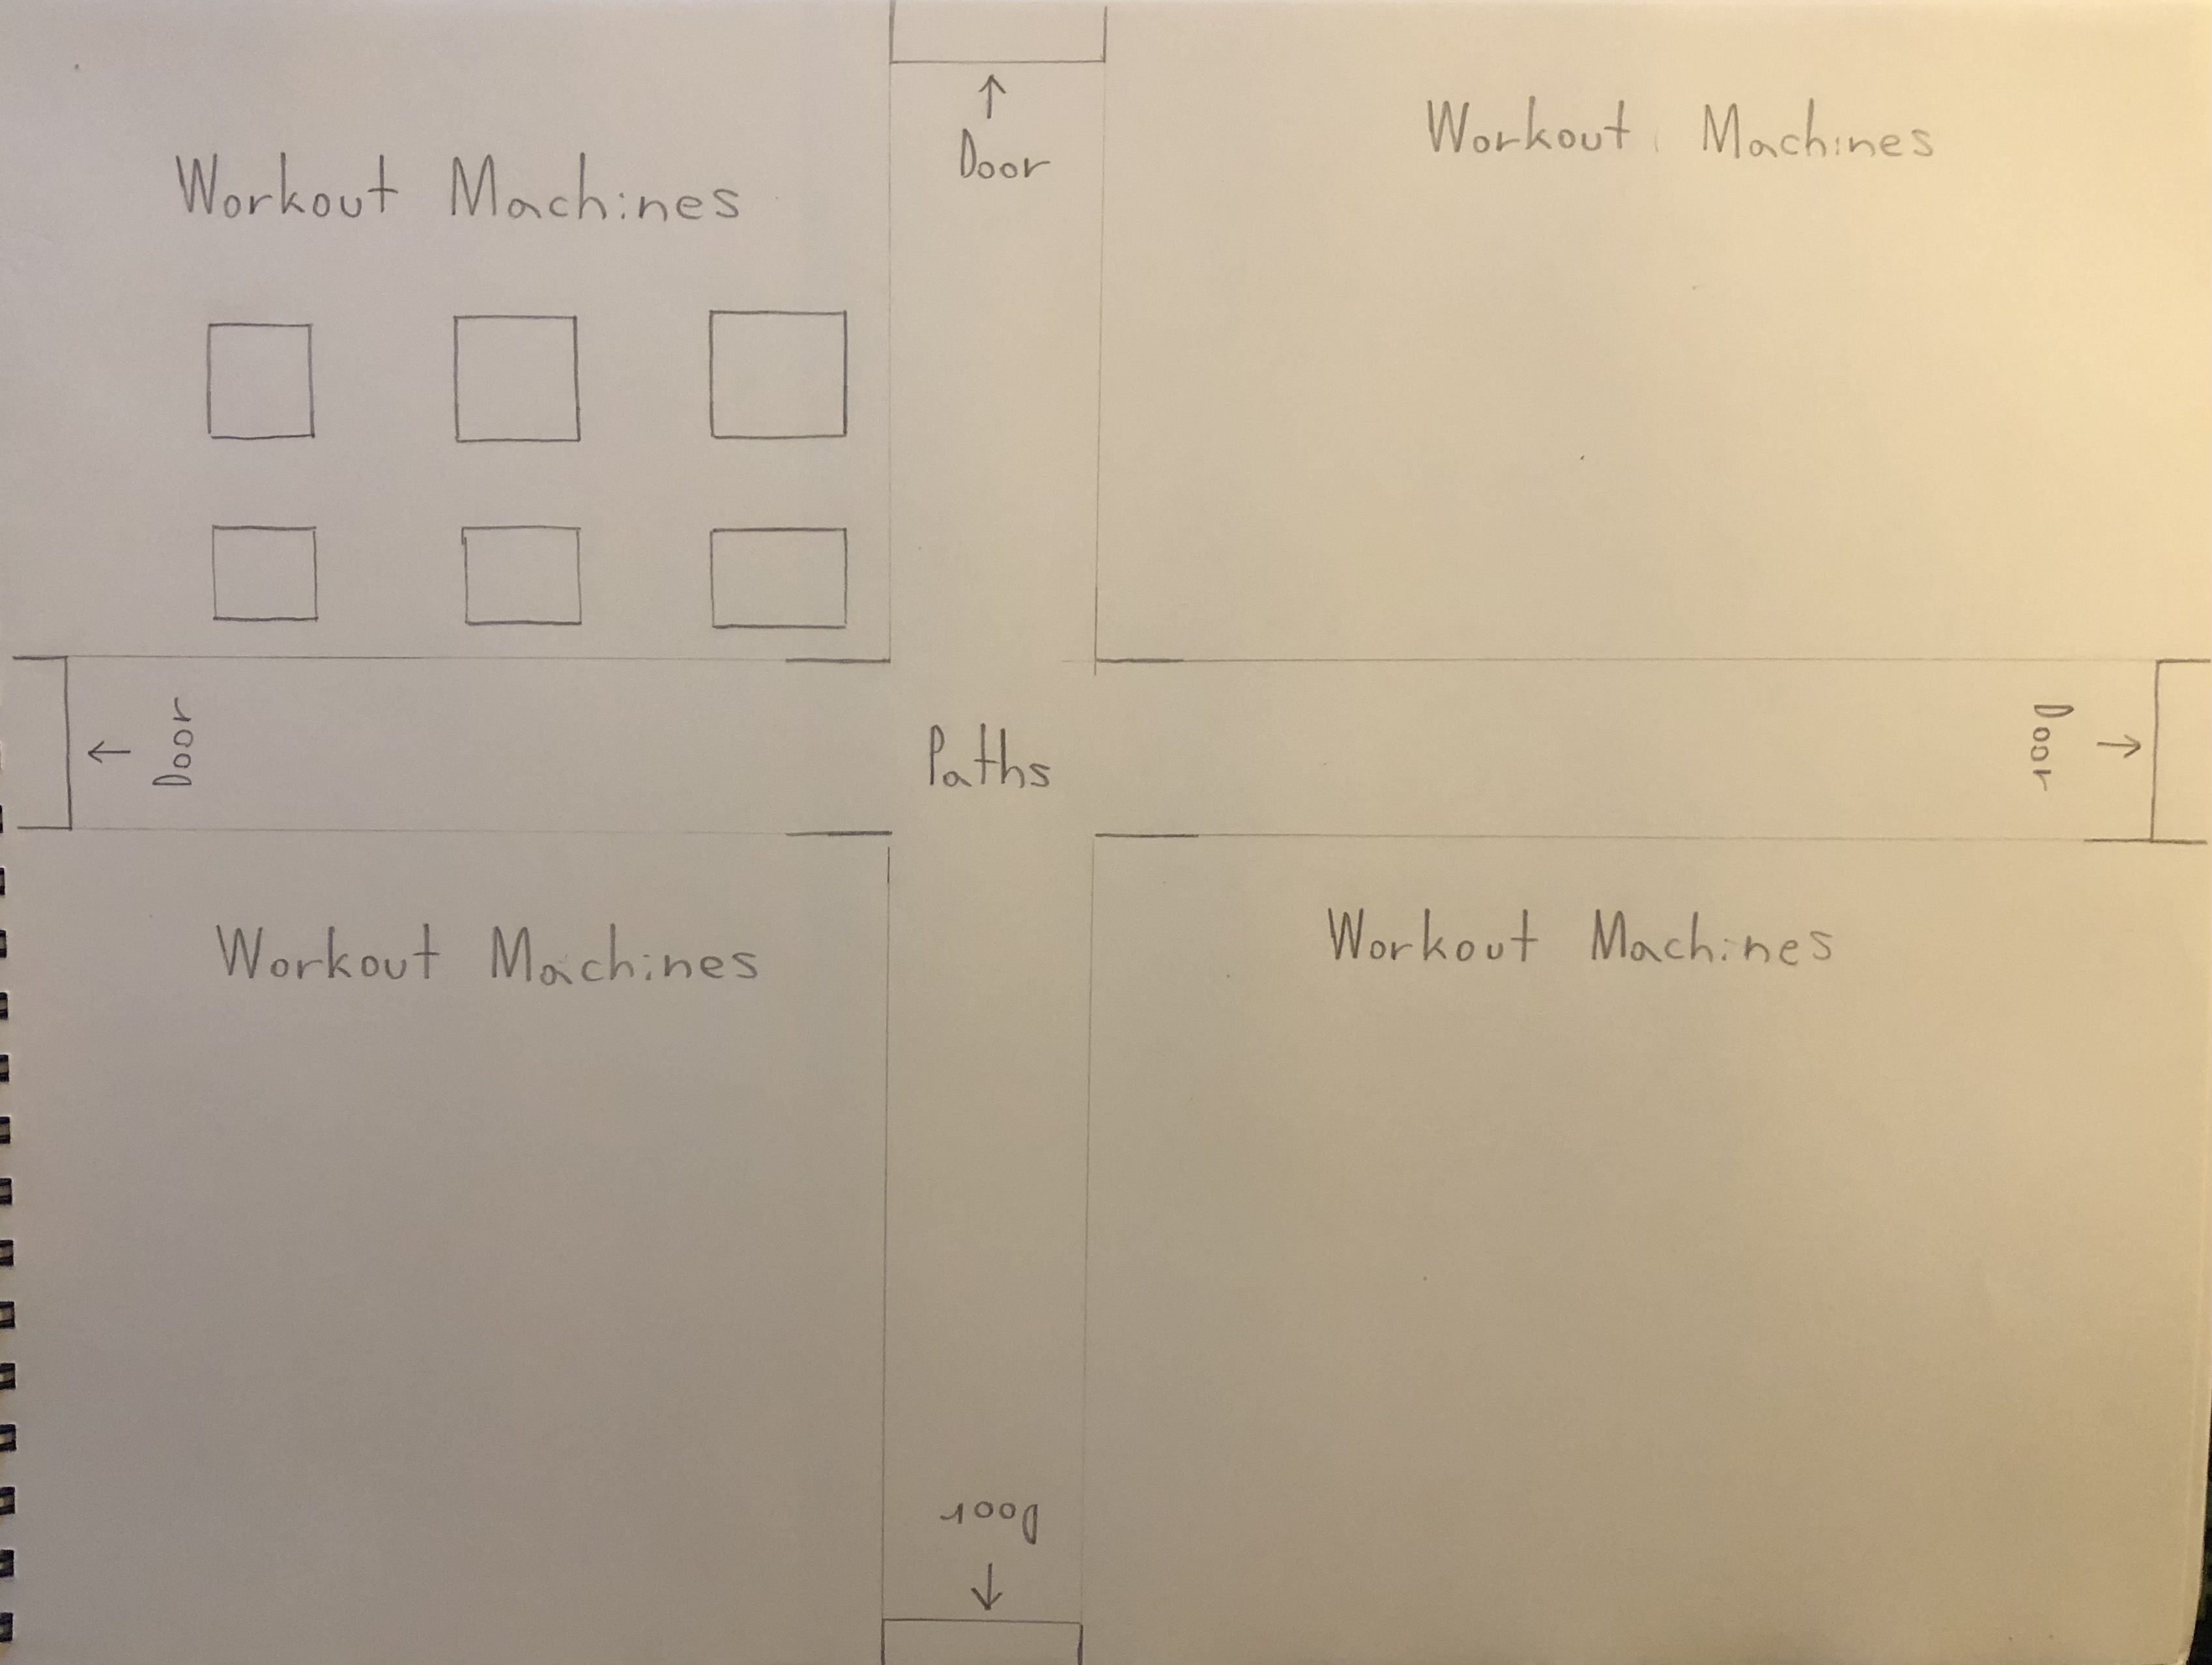 Door
Workout Machines
Workout Machines
Door
Paths
Door
Workout Machines
Workout Machines
Door